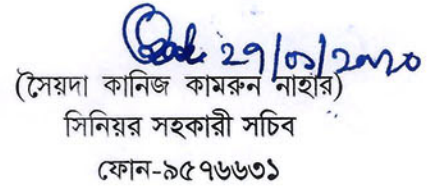 ২৭/০১/২০২০
(সৈয়দা কানিজ কামরুন নাহার)
সিনিয়র সহকারী সচিব
ফোন-৯৫৭৬৬৩১